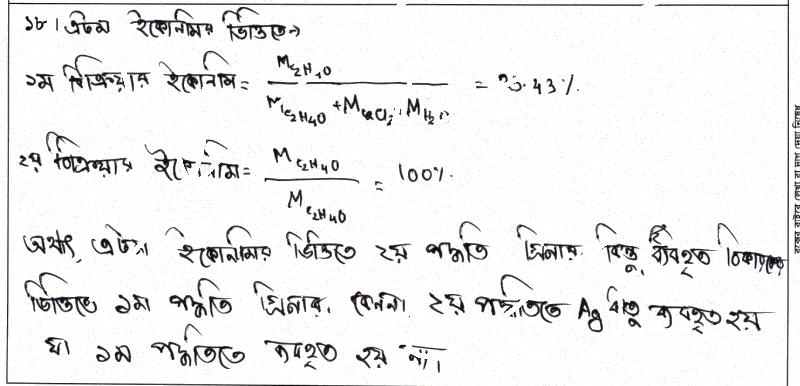 ১৮। এটম ইকোনমির ভিত্তিতে→
১ম বিক্রিয়ার ইকোনমি = M C₂H₄O / M C₂H₄O + M CaCl₂ + M H₂O = .43%.
২য় বিক্রিয়ার ইকোনমি = M C₂H₄O / M C₂H₄O = 100%.
অর্থাৎ এটম ইকোনমির ভিত্তিতে ২য় পদ্ধতি গ্রিনার. কিন্তু ব্যবহৃত
ভিত্তিতে ১ম পদ্ধতি গ্রিনার. কেননা ২য় পদ্ধতিতে Ag ধাতু ব্যবহৃত হয়
যা ১ম পদ্ধতিতে ব্যবহৃত হয় না।